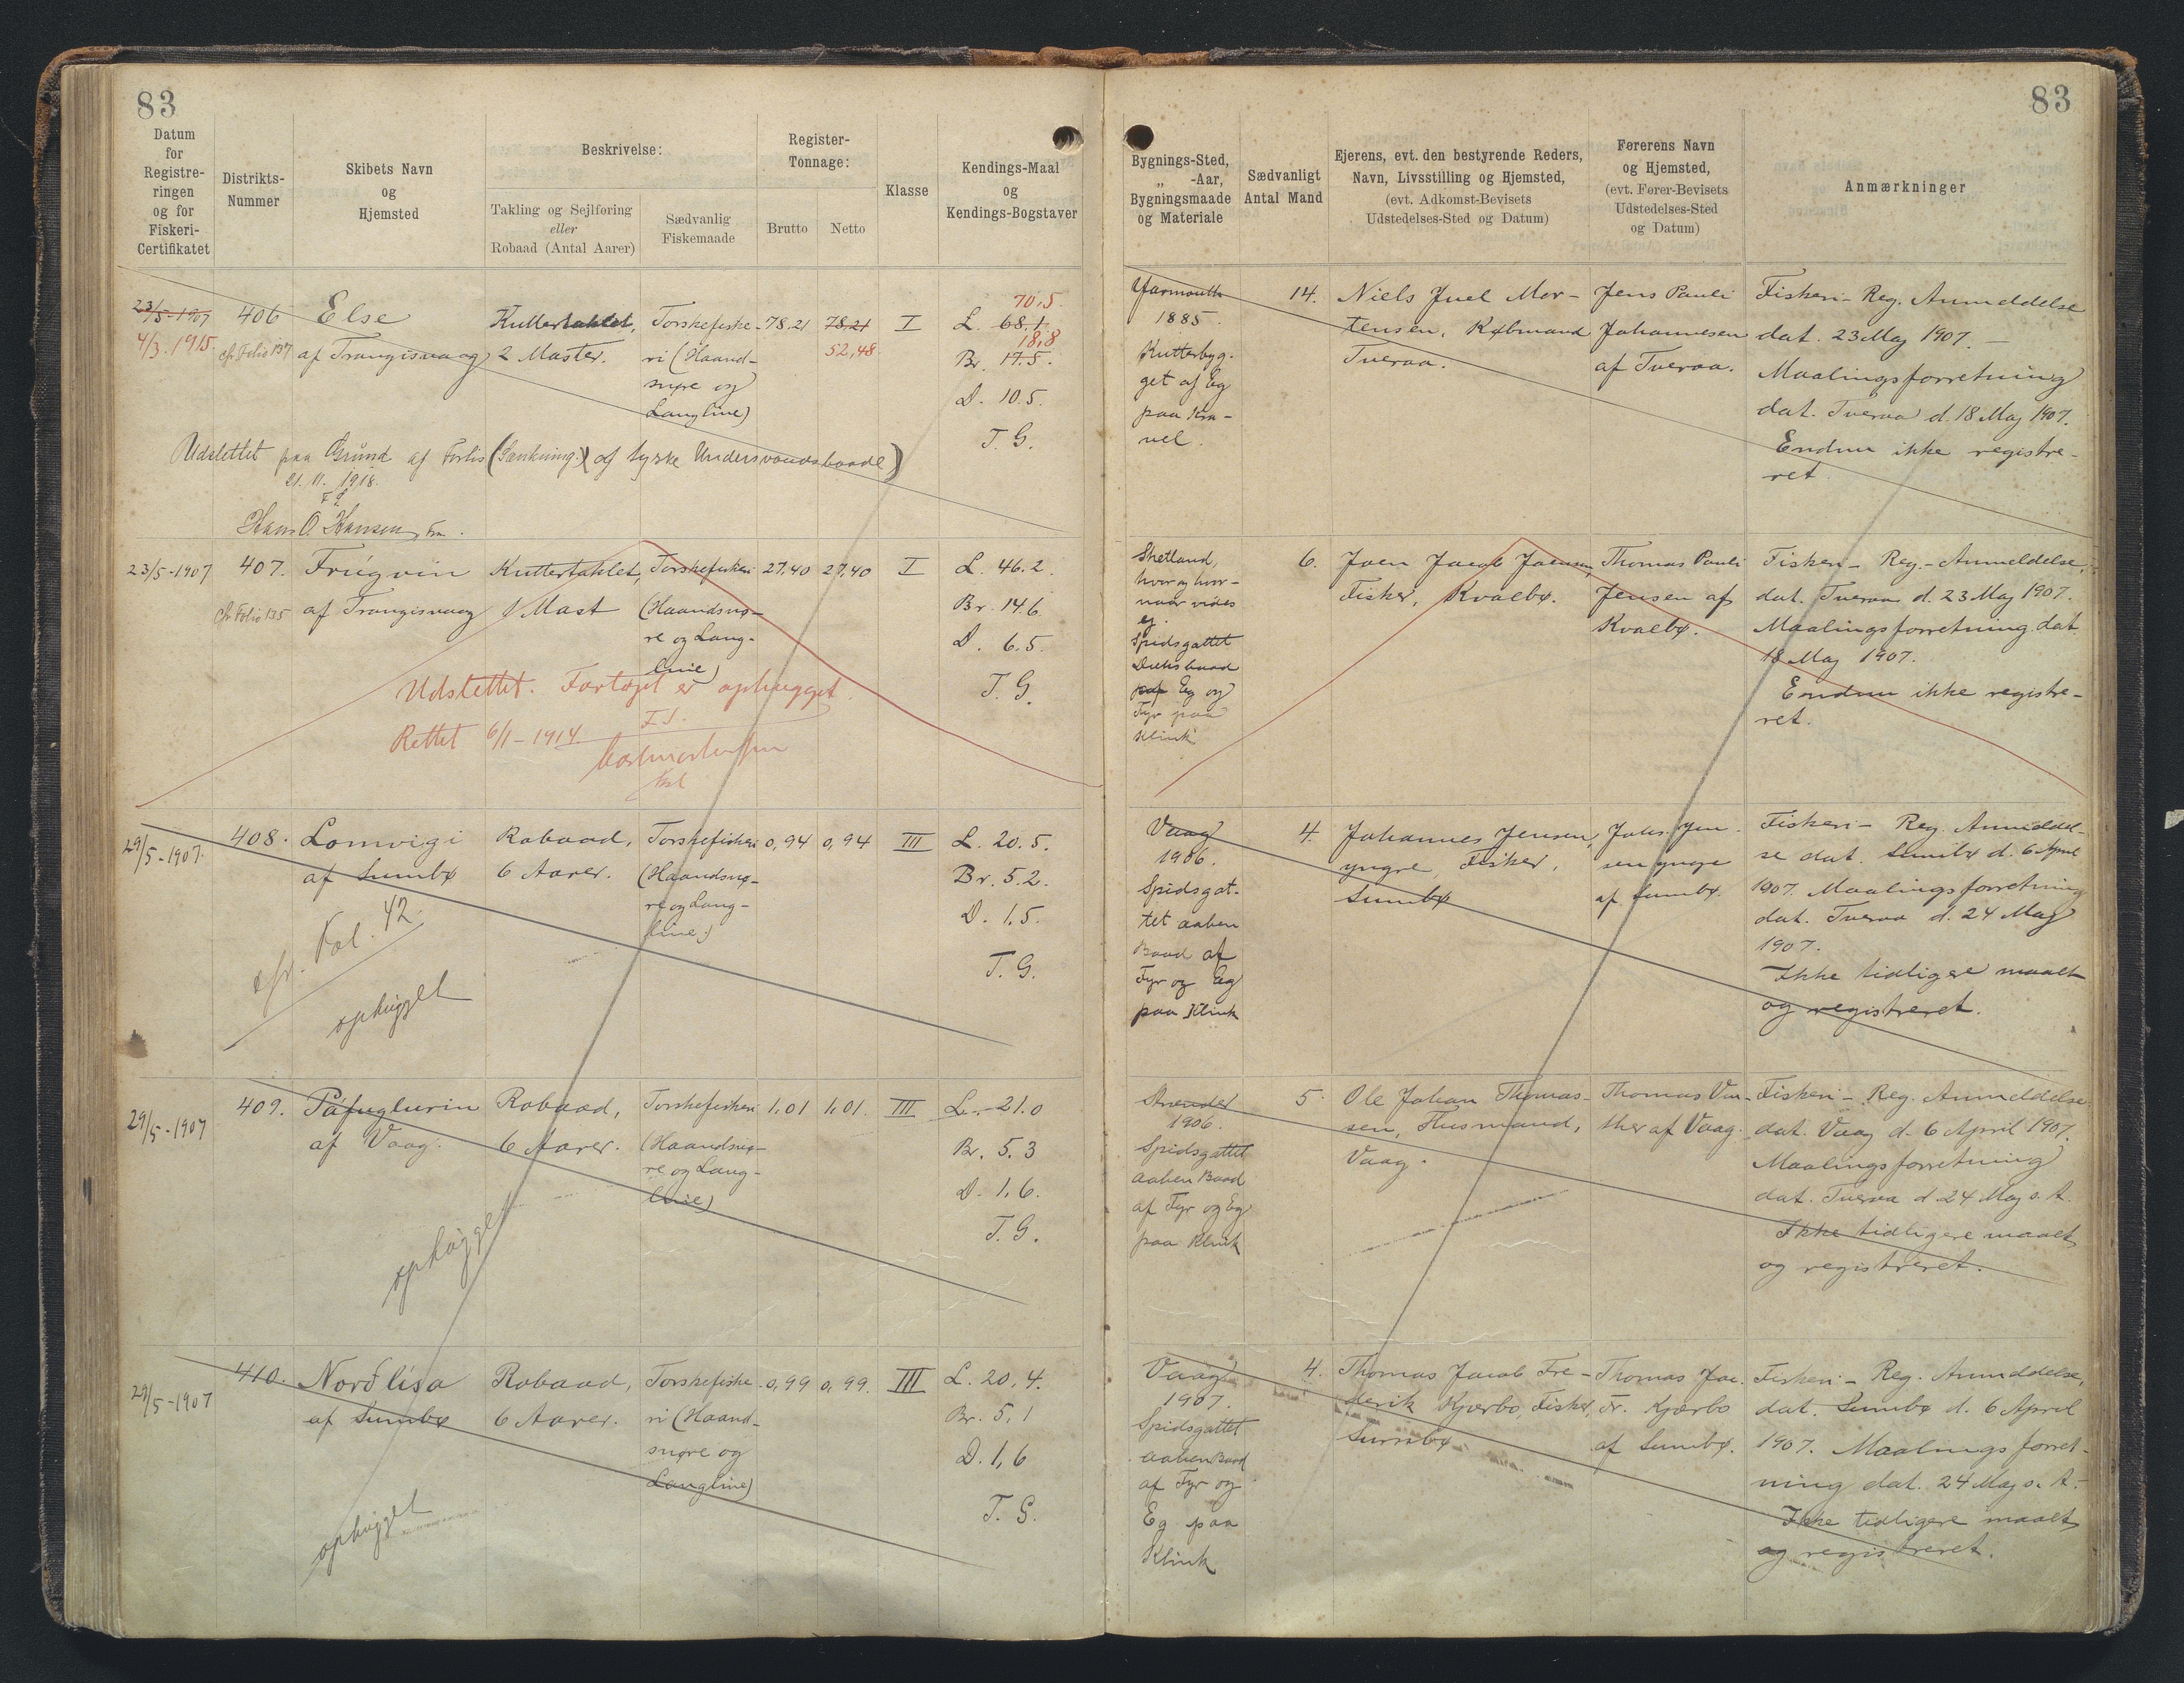 83
83
Datum
for
Registre-
ringen
og for
Fiskeri-
Certifikatet
Distrikts-
Nummer
Skibets Navn
og
Hjemsted
Beskrivelse:
Takling og Sejlføring
eller
Robaad (Antal Aarer)
Sædvanlig
Fiskemaade
Register-
Tonnage:
Brutto
Netto
Klasse
Kendings-Maal
og
Kendings-Bogstaver
Bygnings-Sted,
„ -Aar,
Bygningsmaade
og Materiale
Sædvanligt
Antal Mand
Ejerens, evt. den bestyrende Reders,
Navn, Livsstilling og Hjemsted,
(evt. Adkomst-Bevisets
Udstedelses-Sted og Datum)
Førerens Navn
og Hjemsted,
(evt. Fører-Bevisets
Udstedelses-Sted
og Datum)
Anmærkninger
23/5-1907
4/3. 1915
406
cfr. Folio 137
Else
af Trangisvaag
Kuttertaklet,
2 Master.
Torskefiske-
ri (Haand-
snøre og
Langline)
78,21
78,21
52,48
I
70,5
L. 68.1
18,8
Br. 17.5.
D. 10.5.
T. G.
Yarmouth
1885.
Kutterbyg-
get af Eg
paa Kra-
vel.
14.
Niels Juel Mor-
tensen, Købmand
Tveraa.
Jens Pauli
Johannesen
af Tveraa.
Fiskeri-Reg. Anmeldelse
dat. 23 Maj 1907. -
Maalingsforretning
dat. Tveraa d. 18 Maj 1907.
Endnu ikke registre-
ret
Udslettet paa Grund af Forlis (Sænkning) af tyske Undervandsbaade)
21. 11. 1918.
Hans O. Hansen, Fm.
23/5-1907
407.
cfr. Folio 135
Frúgvin
af Trangisvaag
Kuttertaklet,
1 Mast
Torskefiskeri
(Haandsnø-
re og Lang-
line)
27,40
27,40
I
L. 46.2.
Br. 14.6
D. 6.5.
T. G.
Shetland,
hvor og hvor-
naar vides
ej.
Spidsgattet
Dæksbaad
af Eg og
Fyr paa
Klink
6.
Joen Jacob Joensen,
Fisker, Kvalbø.
Thomas Pauli
Jensen af
Kvalbø.
Fiskeri-Reg.-Anmeldelse,
dat. Tveraa d. 23 Maj 1907.
Maalingsforretning dat.
18 Maj 1907.
Endnu ikke registre-
ret.
Udslettet. Fartøjet er ophugget.
Rettet 6/1-1914.
29/5-1907.
408.
Lomvigi
af Sumbø
Robaad,
6 Aarer.
Torskefiskeri
(Haandsnø-
re og Lang-
line.)
0,94
0,94
III
L. 20.5.
Br. 5.2.
D. 1,5.
T. G.
Vaag
1906.
Spidsgat-
tet aaben
Baad af
Fyr og Eg
paa Klink
4.
Johannes Jensen,
yngre, Fisker,
Sumbø
Johs. Jen-
sen yngre
af Sumbø.
Fiskeri-Reg. Anmeldel-
se dat. Sumbø d. 6 April
1907. Maalingsforretning
dat. Tveraa d. 24 Maj
1907.
Ikke tidligere maalt
og registreret.
cfr. Fol. 42.
ophugget
29/5-1907
409.
Páfuglurin
af Vaag.
Robaad,
6 Aarer.
Torskefiskeri
(Haandsnø-
re og Lang-
line)
1,01
1,01.
III
L. 21.0
Br. 5.3
D. 1,6.
T. G.
Strender
1906.
Spidsgattet
aaben Baad
af Fyr og Eg
paa Klink
5.
Ole Johan Thomas-
sen, Husmand,
Vaag.
Fiskeri-Reg. Anmeldelse
dat. Vaag d. 6 April 1907.
Maalingsforretning
dat. Tveraa d. 24 Maj s. A.
Ikke tidligere maalt
og registreret.
ophugget
29/5-1907
410.
Norðlísa
af Sumbø
Robaad,
6 Aarer.
Torskefiske-
ri (Haand-
snøre og
Langline)
0,99
0,99.
III
L. 20,4.
Br. 5,1
D. 1,6
T. G.
Vaag
1907.
Spidsgattet
aaben Baad
af Fyr og
Eg paa
Klink
4.
Thomas Jacob Fre-
derik Kjærbo, Fisker,
Sumbø
Thomas Jac.
Fr. Kjærbo
af Sumbø.
Fiskeri-Reg. Anmeldelse,
dat. Sumbø d. 6 April
1907. Maalingsforret-
ning dat. 24 Maj s. A.
Ikke tidligere maalt
og registreret.
ophugget